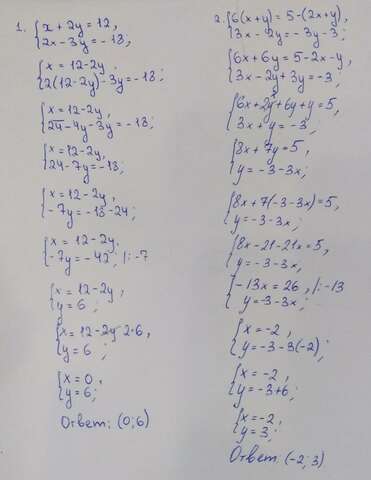 1. { x + 2y = 12,
2x - 3y = -18;
{ x = 12 - 2y,
2(12 - 2y) - 3y = -18;
{ x = 12 - 2y,
24 - 4y - 3y = -18;
{ x = 12 - 2y,
24 - 7y = -18;
{ x = 12 - 2y,
-7y = -18 - 24;
{ x = 12 - 2y,
-7y = -42, |:-7
{ x = 12 - 2y,
y = 6;
{ x = 12 - 2y 2·6,
y = 6 ;
{ x = 0,
y = 6;
Ответ: (0; 6)
2. { 6(x+y) = 5 - (2x+y),
3x - 2y = -3y - 3;
{ 6x + 6y = 5 - 2x - y,
3x - 2y + 3y = -3;
{ 6x + 2x + 6y + y = 5,
3x + y = -3;
{ 8x + 7y = 5,
y = -3 - 3x;
{ 8x + 7(-3 - 3x) = 5,
y = -3 - 3x;
{ 8x - 21 - 21x = 5,
y = -3 - 3x;
{ -13x = 26, |:-13
y = -3 - 3x;
{ x = -2,
y = -3 - 3(-2);
{ x = -2,
y = -3 + 6;
{ x = -2,
y = 3;
Ответ: (-2; 3)